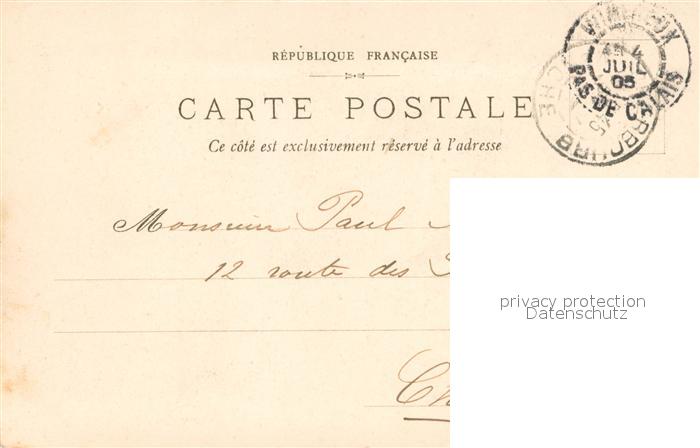 RÉPUBLIQUE FRANÇAISE
CARTE POSTALE
Ce côté est exclusivement réservé à l'adresse
WIMEREUX
4
JUIL
05
PAS DE CALAIS
CHERBOURG
Monsieur Paul
12 route des
privacy protection
Datenschutz